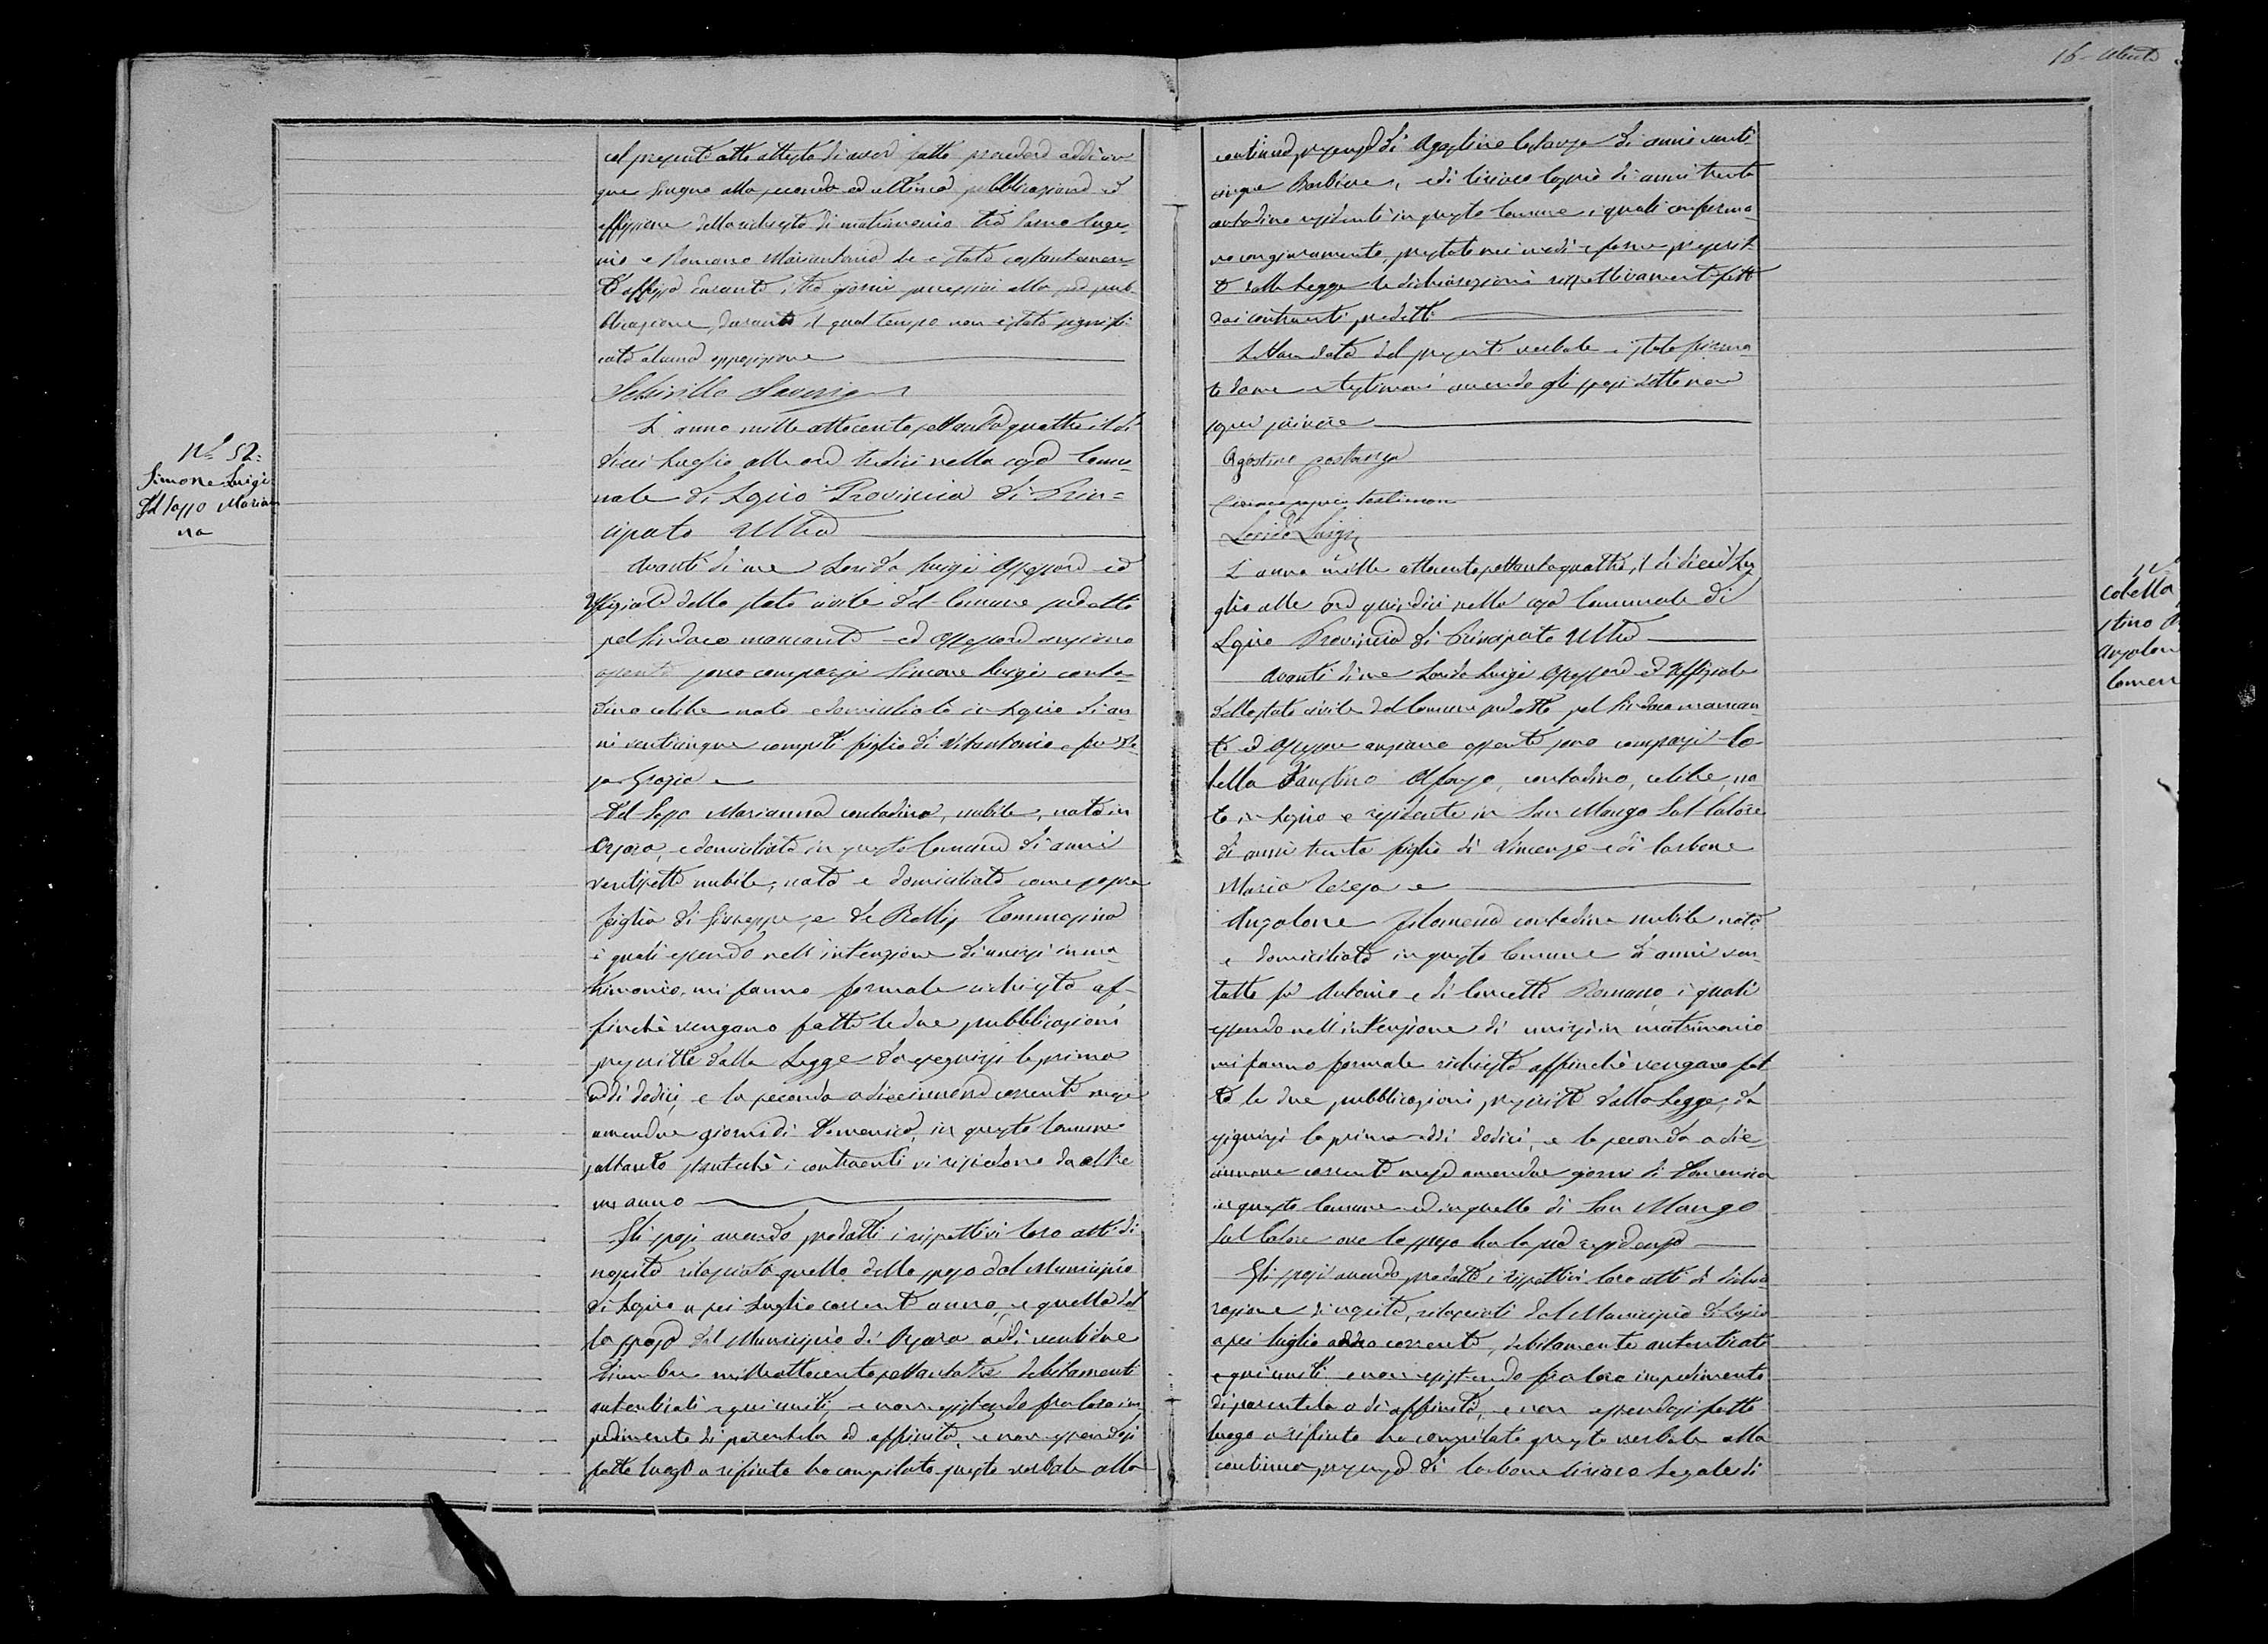 16
col presente atto attesto di aver fatto procedere addì cin
que Giugno alla seconda ed ultima pubblicazione ed
affissione della richiesta di matrimonio tra
nio e Romano Mariantonia che è stata costantemen-
te affissa durante i tre giorni successivi alla sua pub-
blicazione, durante il qual tempo non è stata signifi-
cata alcuna opposizione
Schirillo
N. 52:
Simone Luigi
Del Sapo Marian
na
L'anno mille ottocento settanta quattro il dì
dieci Luglio alle ore tredici nella casa Comu-
nale di Sopra Provincia di Prin=
cipato Ultra
Avanti di me Luigi Assessore ed
Uffiziale dello stato civile del Comune suddetto
pel Sindaco mancante ed Assessore anziano
assente sono comparsi Simone Luigi conta-
dino celibe nato e domiciliato in di an-
ni venticinque compiti figlio di Vitantonio e fu
Grazia e
Del Marianna contadina, nubile, nata in
e domiciliata in questo Comune di anni
ventisette nubile, nata e domiciliata come sopra
figlia di Giuseppe, e de Rollis Tommasina
i quali essendo nell'intenzione di unirsi in ma
trimonio, mi fanno formale richiesta af-
finchè vengano fatte le due pubblicazioni
prescritte dalla Legge da eseguirsi la prima
addì dodici, e la seconda a diecinnove corrente mese
amendue giorni di Domenica, in questo Comune
soltanto stantechè i contraenti vi risiedono da oltre
un anno
Gli sposi avendo prodotti i rispettivi loro atti di
nascita rilasciato quello dello sposo dal Municipio
di a sei Luglio corrente anno, e quello del
la sposa dal Municipio di addì ventidue
Dicembre milleottocentosettantatre debitamente
autenticati e qui uniti, e non esistendo fra loro im
pedimento di parentela od affinità, e non essendosi
fatto luogo a rifiuto ho compilato questo verbale alla
continua presenza di Agostino Costanza di anni venti
cinque Barbiere, e di Ciriaco di anni trenta
contadino residenti in questo Comune i quali conferma-
no con giuramento, prestato nei modi e forme prescrit-
te dalla Legge le dichiarazioni rispettivamente fatte
dai contraenti predetti
Lettura data del presente verbale è stato firma
to da me e testimoni avendo gli sposi detto non
saper scrivere
Agostino Costanza
Ciriaco testimone
Luigi
L'anno mille ottocentosettantaquattro, il dì dieci Lu
glio alle ore quindici nella casa Comunale di
Provincia di Principato Ultra
Avanti di me Luigi Assessore ed Uffiziale
dello stato civile del Comune suddetto pel Sindaco mancan-
te ed Assessore anziano assente sono comparsi Co-
bella Faustino Alfonzo, contadino, celibe, na
to in e residente in San Mango Sul Calore
di anni trenta figlio di Vincenzo e di Carbone
Maria Teresa e
Anzolone Filomena contadina nubile nata
e domiciliata in questo Comune di anni ven
totto fu Antonio e di Concetta Romano, i quali
essendo nell'intenzione di unirsi in matrimonio
mi fanno formale richiesta affinchè vengano fat
te le due pubblicazioni prescritte dalla Legge, da
eseguirsi la prima addì dodici, e la seconda a die
cinnove corrente mese amendue giorni di Domenica
in questo Comune ed in quello di San Mango
Sul Calore ove lo sposo ha la sua residenza
Gli sposi avendo prodotti i rispettivi loro atti di dichia
razione di nascita, rilasciati dal Municipio di
a sei luglio anno corrente, debitamente autenticati
e qui uniti, e non esistendo fra loro impedimento
di parentela o di affinità, e non essendosi fatto
luogo a rifiuto ho compilato questo verbale alla
continua presenza di Carbone Ciriaco Legale di
Cobella
stino
Anzolon